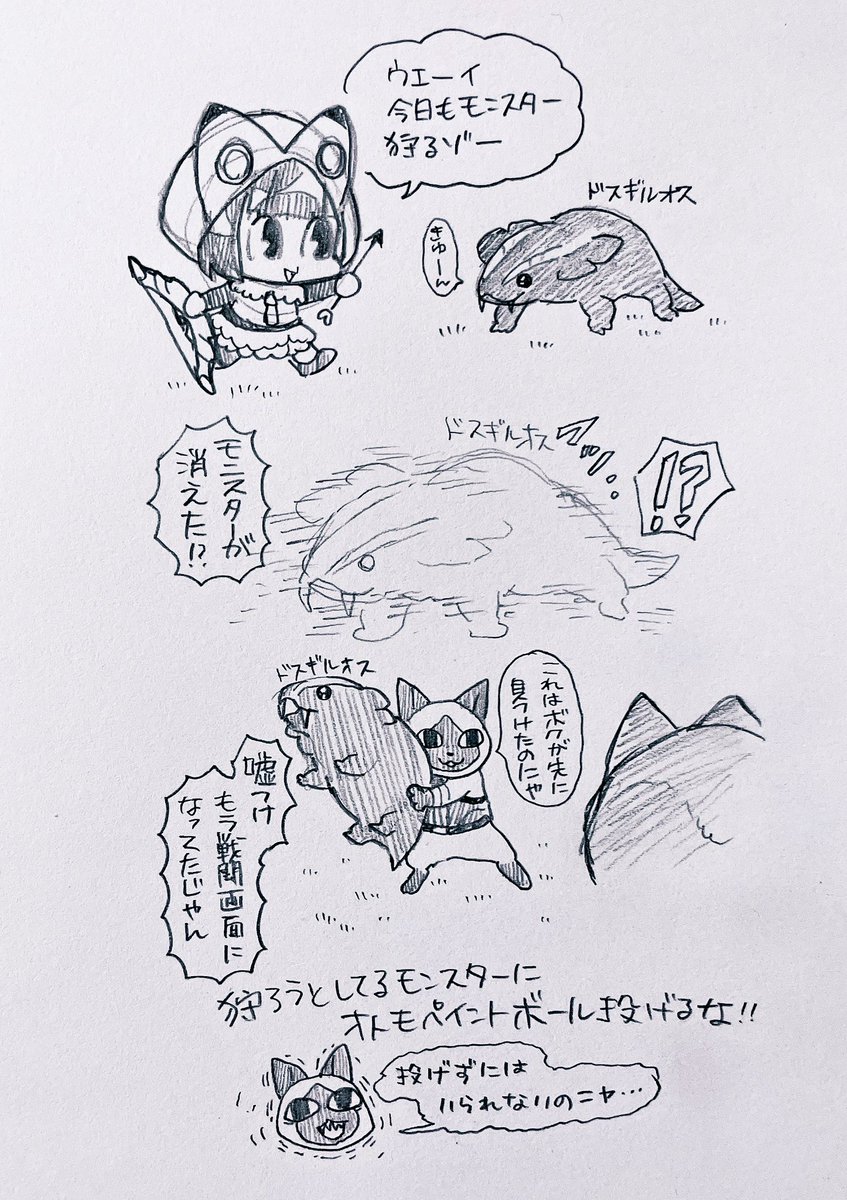 ウエーイ
今日もモンスター
狩るゾー
ドスギルオス
きゅーん
ドスギルオス
!?
モンスターが
消えた!?
ドスギルオス
これはボクが先に
見つけたのにゃ
嘘つけ
もう戦闘画面に
なってたじゃん
狩ろうとしてるモンスターに
オトモペイントボール投げるな!!
投げずには
いられないのニャ…